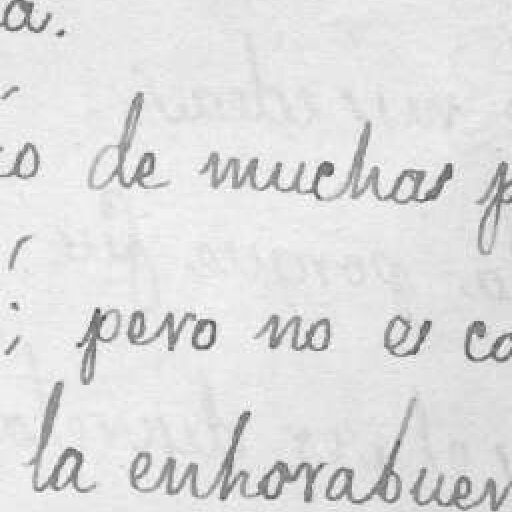 a.
o de muchas p
; pero no es co
la enhorabuen